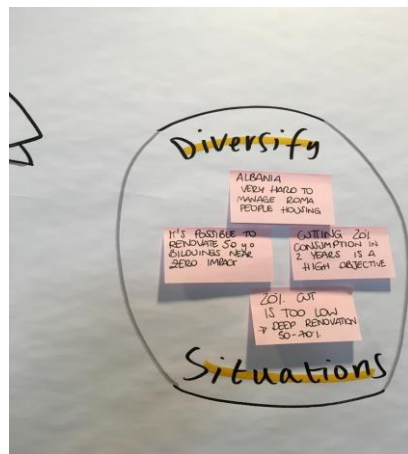 Diversify
ALBANIA
VERY HARD TO
MANAGE ROMA
PEOPLE HOUSING
IT'S POSSIBLE TO
RENOVATE 50 y.o
BILDUINGS NEAR
ZERO IMPACT
CUTTING 20%
CONSUMPTION IN
2 YEARS IS A
HIGH OBJECTIVE
20% CUT
IS TOO LOW
→ DEEP RENOVATION
50-70%
Situations